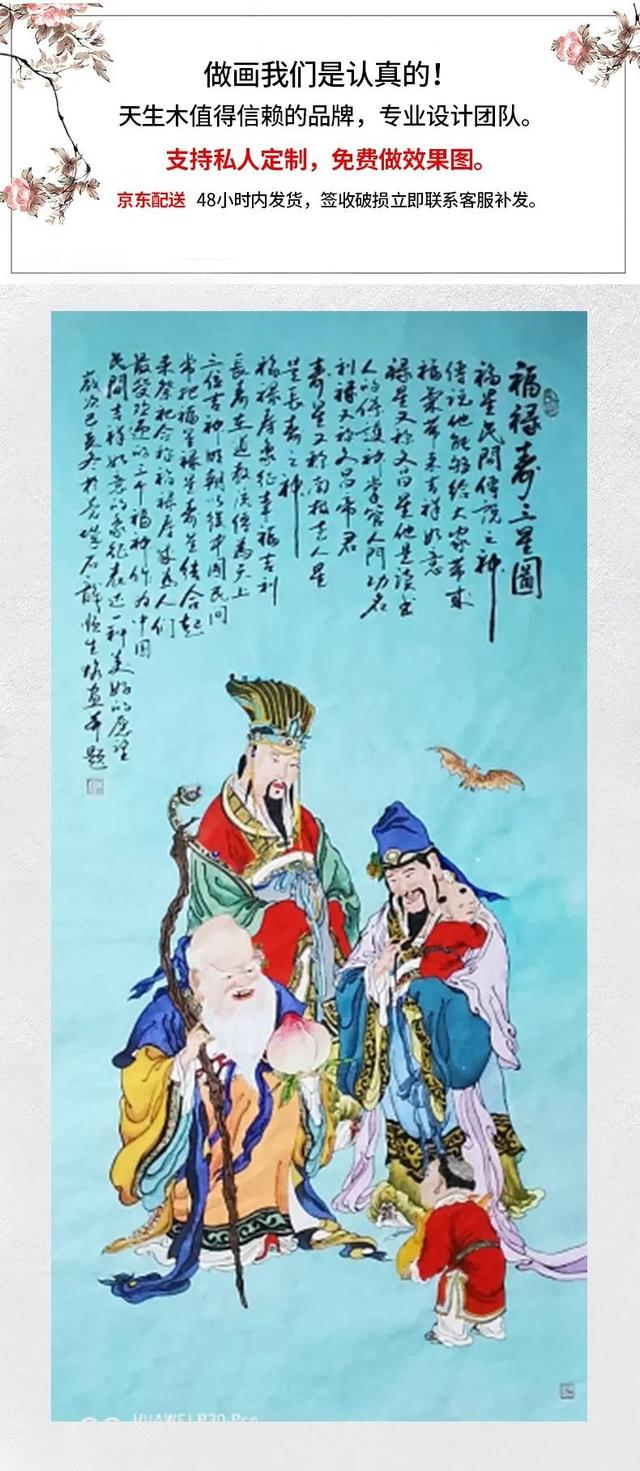 做画我们是认真的！
天生木值得信赖的品牌，专业设计团队。
支持私人定制，免费做效果图。
京东配送 48小时内发货，签收破损立即联系客服补发。
福禄寿三星圖
福星民間傳說之神
傳說他能夠给大家带来
福氣带来吉祥如意
禄星又称文曲星他是讀書
人的保護神掌管人間功名
利禄又称文昌帝君
寿星又称南极老人星
是長寿之神
福禄寿象征幸福吉利
長寿在道教流傳為天上
三位吉神明朝以後中國民间
常把福星禄星寿星结合起
来祭祀合称福禄寿成為人们
最受欢迎的三个福神作为中国
民間吉祥如意的象征表达一种美好的愿望
歲次己亥冬於
畫并题
HUAWEI P30 Pro